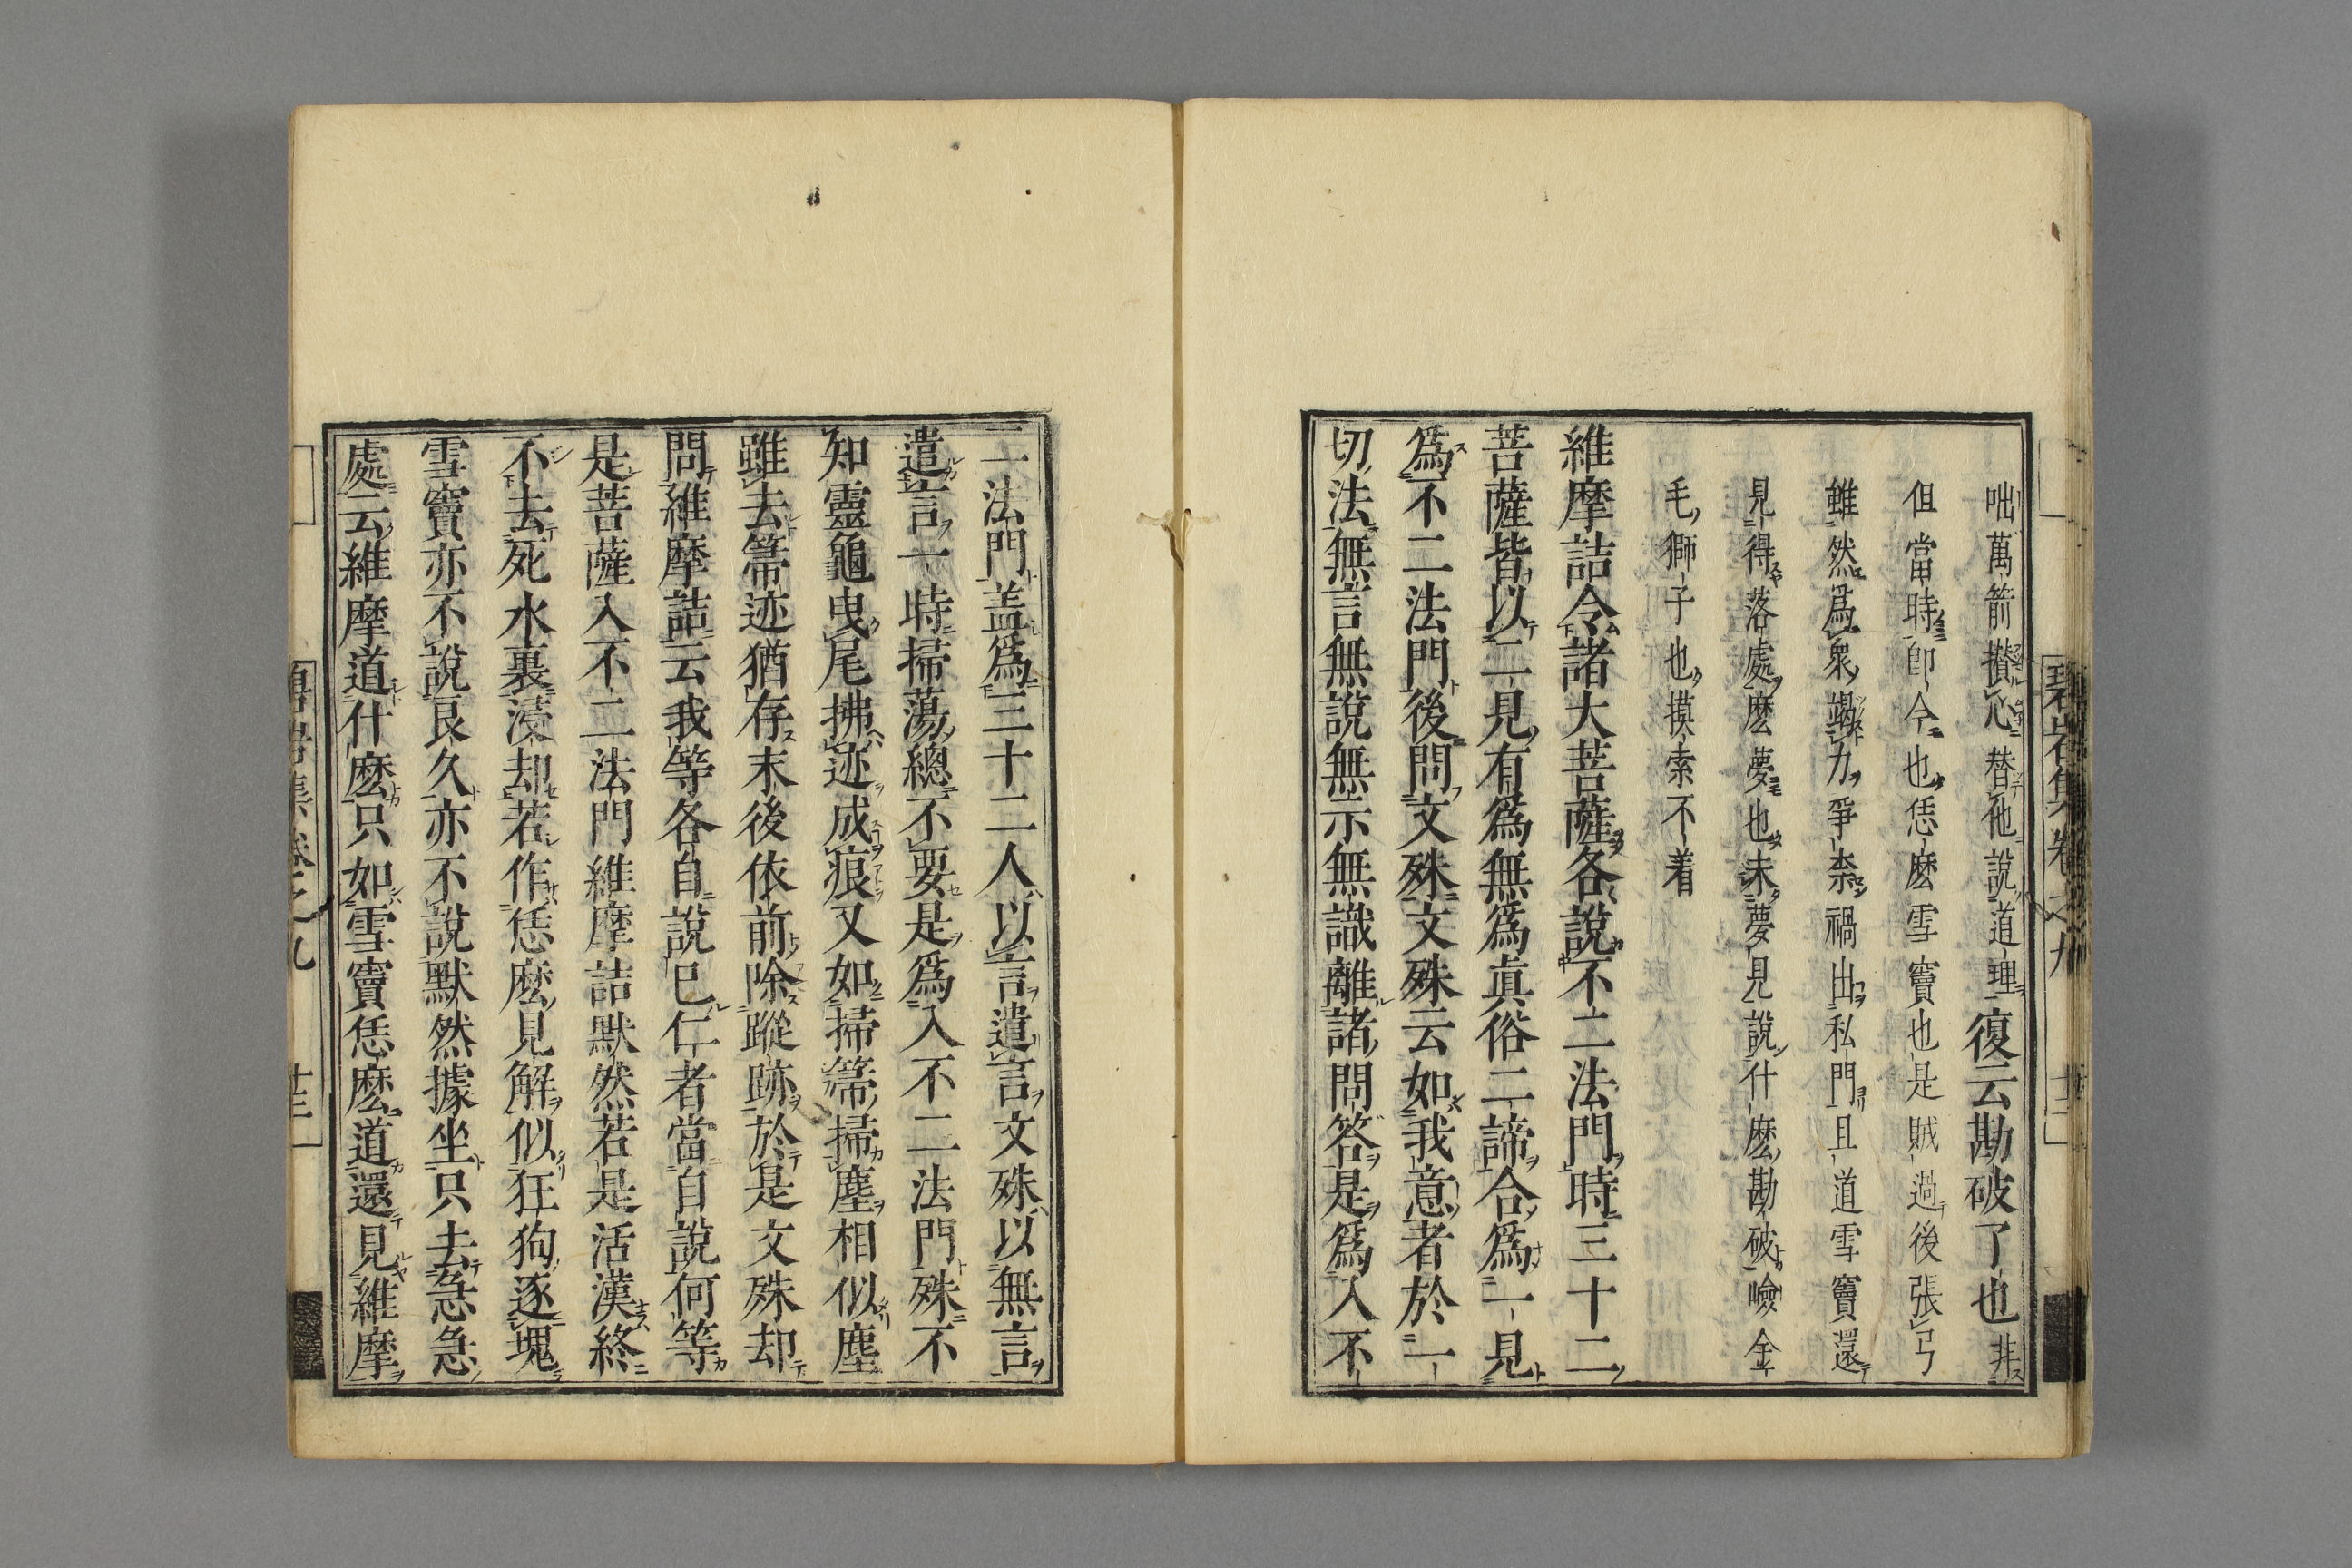 咄萬箭攅心替他說道理復云勘破了也非
但當時卽今也恁麼雪竇也是賊過後張弓
雖然爲衆竭力爭柰禍出私門且道雪竇還
見得落處麼夢也未夢見說什麼勘破嶮金
毛獅子也摸索不着
維摩詰令諸大菩薩各說不二法門時三十二
菩薩皆以二見有爲無爲眞俗二諦合爲一見
爲不二法門後問文殊文殊云如我意者於一
切法無言無說無示無識離諸問答是爲入不
二法門盖爲三十二人以言遣言文殊以無言
遣言一時掃蕩總不要是爲入不二法門殊不
知靈龜曳尾拂迹成痕又如掃箒掃塵相似塵
雖去箒迹猶存末後依前除蹤跡於是文殊却
問維摩詰云我等各自說已仁者當自說何等
是菩薩入不二法門維摩詰默然若是活漢終
不去死水裏浸却若作恁麼見解似狂狗逐塊
雪竇亦不說良久亦不說默然據坐只去急急
處云維摩道什麼只如雪竇恁麼道還見維摩
碧岩集卷之九